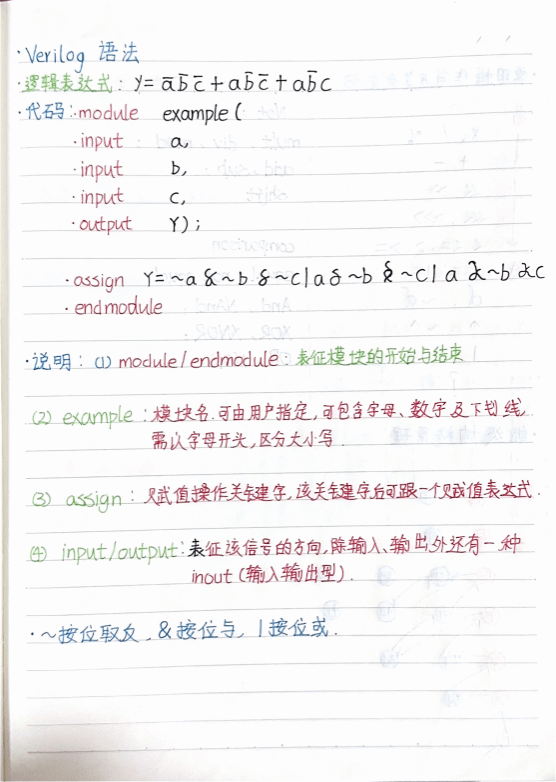 ·Verilog 语法
·逻辑表达式: Y= a̅ b̅ c̅ + a b̅ c̅ + a b̅ c
·代码:·module example (
·input a,
·input b,
·input c,
·output Y);
·assign Y= ~a & ~b & ~c | a & ~b & ~c | a & ~b & c
·endmodule
·说明: (1) module/endmodule: 表征模块的开始与结束
(2) example: 模块名.可由用户指定,可包含字母、数字及下划线,
需以字母开头,区分大小写.
(3) assign: 赋值操作关键字,该关键字后可跟一个赋值表达式.
(4) input/output: 表征该信号的方向,除输入、输出外还有一种
inout (输入输出型).
·~按位取反,&按位与,|按位或.